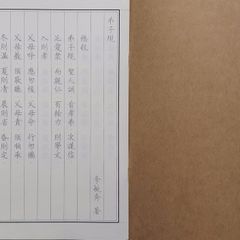 弟子規
總敘
弟子規 聖人訓 首孝弟 次謹信
汎愛眾 而親仁 有餘力 則學文
入則孝
父母呼 應勿緩 父母命 行勿懶
父母教 須敬聽 父母責 須順承
冬則溫 夏則凊 晨則省 昏則定